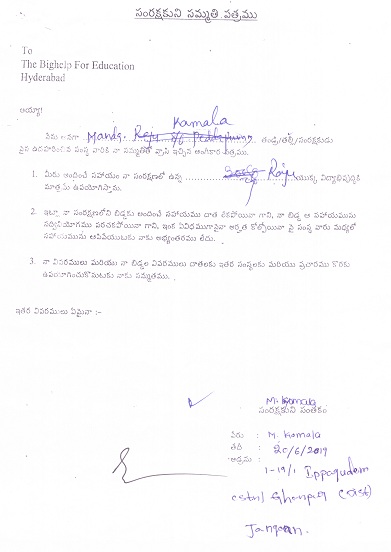 సంరక్షకుని సమ్మతి పత్రము
To
The Bighelp For Education
Hyderabad
అయ్యా!
Kamala
నేను అనగా Manda. Raju తండ్రి/తల్లి/సంరక్షకుడు
పైన ఉదహరించిన సంస్థ వారికి నా సమ్మతితో వ్రాసి ఇచ్చిన అంగీకార పత్రము.
1. మీరు అందించే సహాయం నా సంరక్షణలో ఉన్న Raju యొక్క విద్యాభివృద్ధికి
మాత్రమే ఉపయోగిస్తాను.
2. ఇట్లా నా సంరక్షణలోని బిడ్డకు అందించే సహాయము దాత లేకపోయినా గాని, నా బిడ్డ ఆ సహాయమును
సద్వినియోగము పరచకపోయినా గాని, ఇంక ఏవిధముగానైనా అర్హత కోల్పోయినా పై సంస్థ వారు మధ్యలో
సహాయమును ఆపివేయుటకు నాకు అభ్యంతరము లేదు.
3. నా వివరములు మరియు నా బిడ్డల వివరములు దాతలకు ఇతర సంస్థలకు మరియు ప్రచారము కొరకు
ఉపయోగించుకొనుటకు నాకు సమ్మతము.
ఇతర వివరములు ఏమైనా :-
M. Kamala
సంరక్షకుని సంతకం
పేరు : M. Kamala
తేదీ : 20/6/2019
అడ్రసు : 1-19/1 Ippagudem
Ghanpur (Dist)
Jangaon.